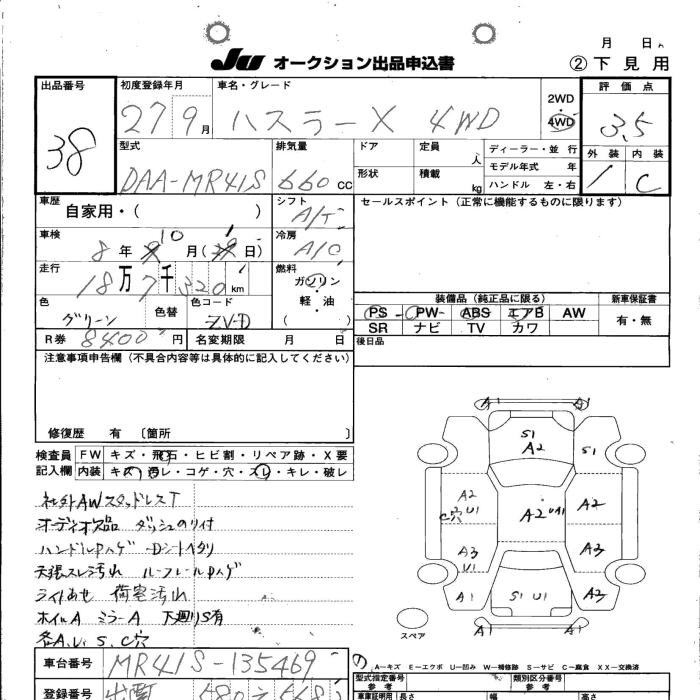 月 日
JU オークション出品申込書 ② 下見用
出品番号 38
初度登録年月 27 9月
車名・グレード ハスラーX 4WD
2WD・4WD
評価点 3.5
型式 DAA-MR41S
排気量 660cc
ドア 定員 人 ディーラー・並行
モデル年式 年
形状 積載 kg ハンドル 左・右
外装 内装 C
車歴 自家用・( )
シフト A/T
セールスポイント (正常に機能するものに限ります)
車検 8年 10月
冷房 A/C
走行 18万7千320km
燃料 ガソリン・軽油 ( )
色 グリーン 色替 色コード ZVD
装備品 (純正品に限る) 新車保証書
PS PW ABS エアB AW 有・無
SR ナビ TV カワ
R券 8400円 名変期限 月 日
後日品
注意事項申告欄 (不具合内容等は具体的に記入してください)
修復歴 有 〔箇所 〕
検査員記入欄 FW キズ・飛石・ヒビ割・リペア跡・X要
内装 キズ・汚レ・コゲ・穴・スレ・キレ・破レ
社外AWスタッドレスT
オーディオ欠品 ダッシュのり付
ハンドルPハゲ Dシートヘタリ
天張スレ汚れ ルーフレールPハゲ
ライトあせ 荷室汚れ
ホイルA ミラーA 下廻りS有
各A.U.S.C穴
A1 A1
S1
A2
S1
A2
C穴 U1
A2 UA1
A2
A3
U1
A3
A1
S1 U1
A1
A1 A1
スペア
車台番号 MR41S-135469
A-キズ E-エクボ U-凹み W-補修跡 S-サビ C-腐食 XX-交換済
型式指定番号 参考
類別区分番号 参考
登録番号 出雲 580
車庫証明用 長さ 幅 高さ